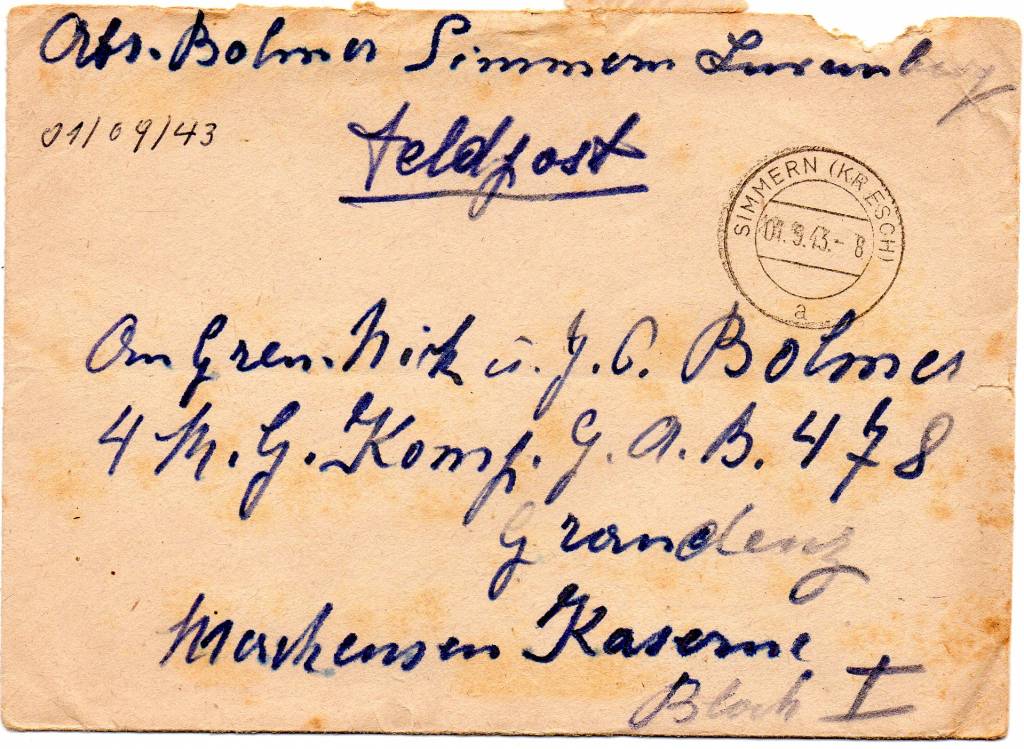 Abs. Bolmer Simmern Luxemburg
01/09/43
Feldpost
SIMMERN (KR ESCH)
01.9.43.- 8
a
An Gren. Nick u. J. C. Bolmer
4 M. G. Komp. G. A. B. 478
Graudenz
Mackensen Kaserne
Block I